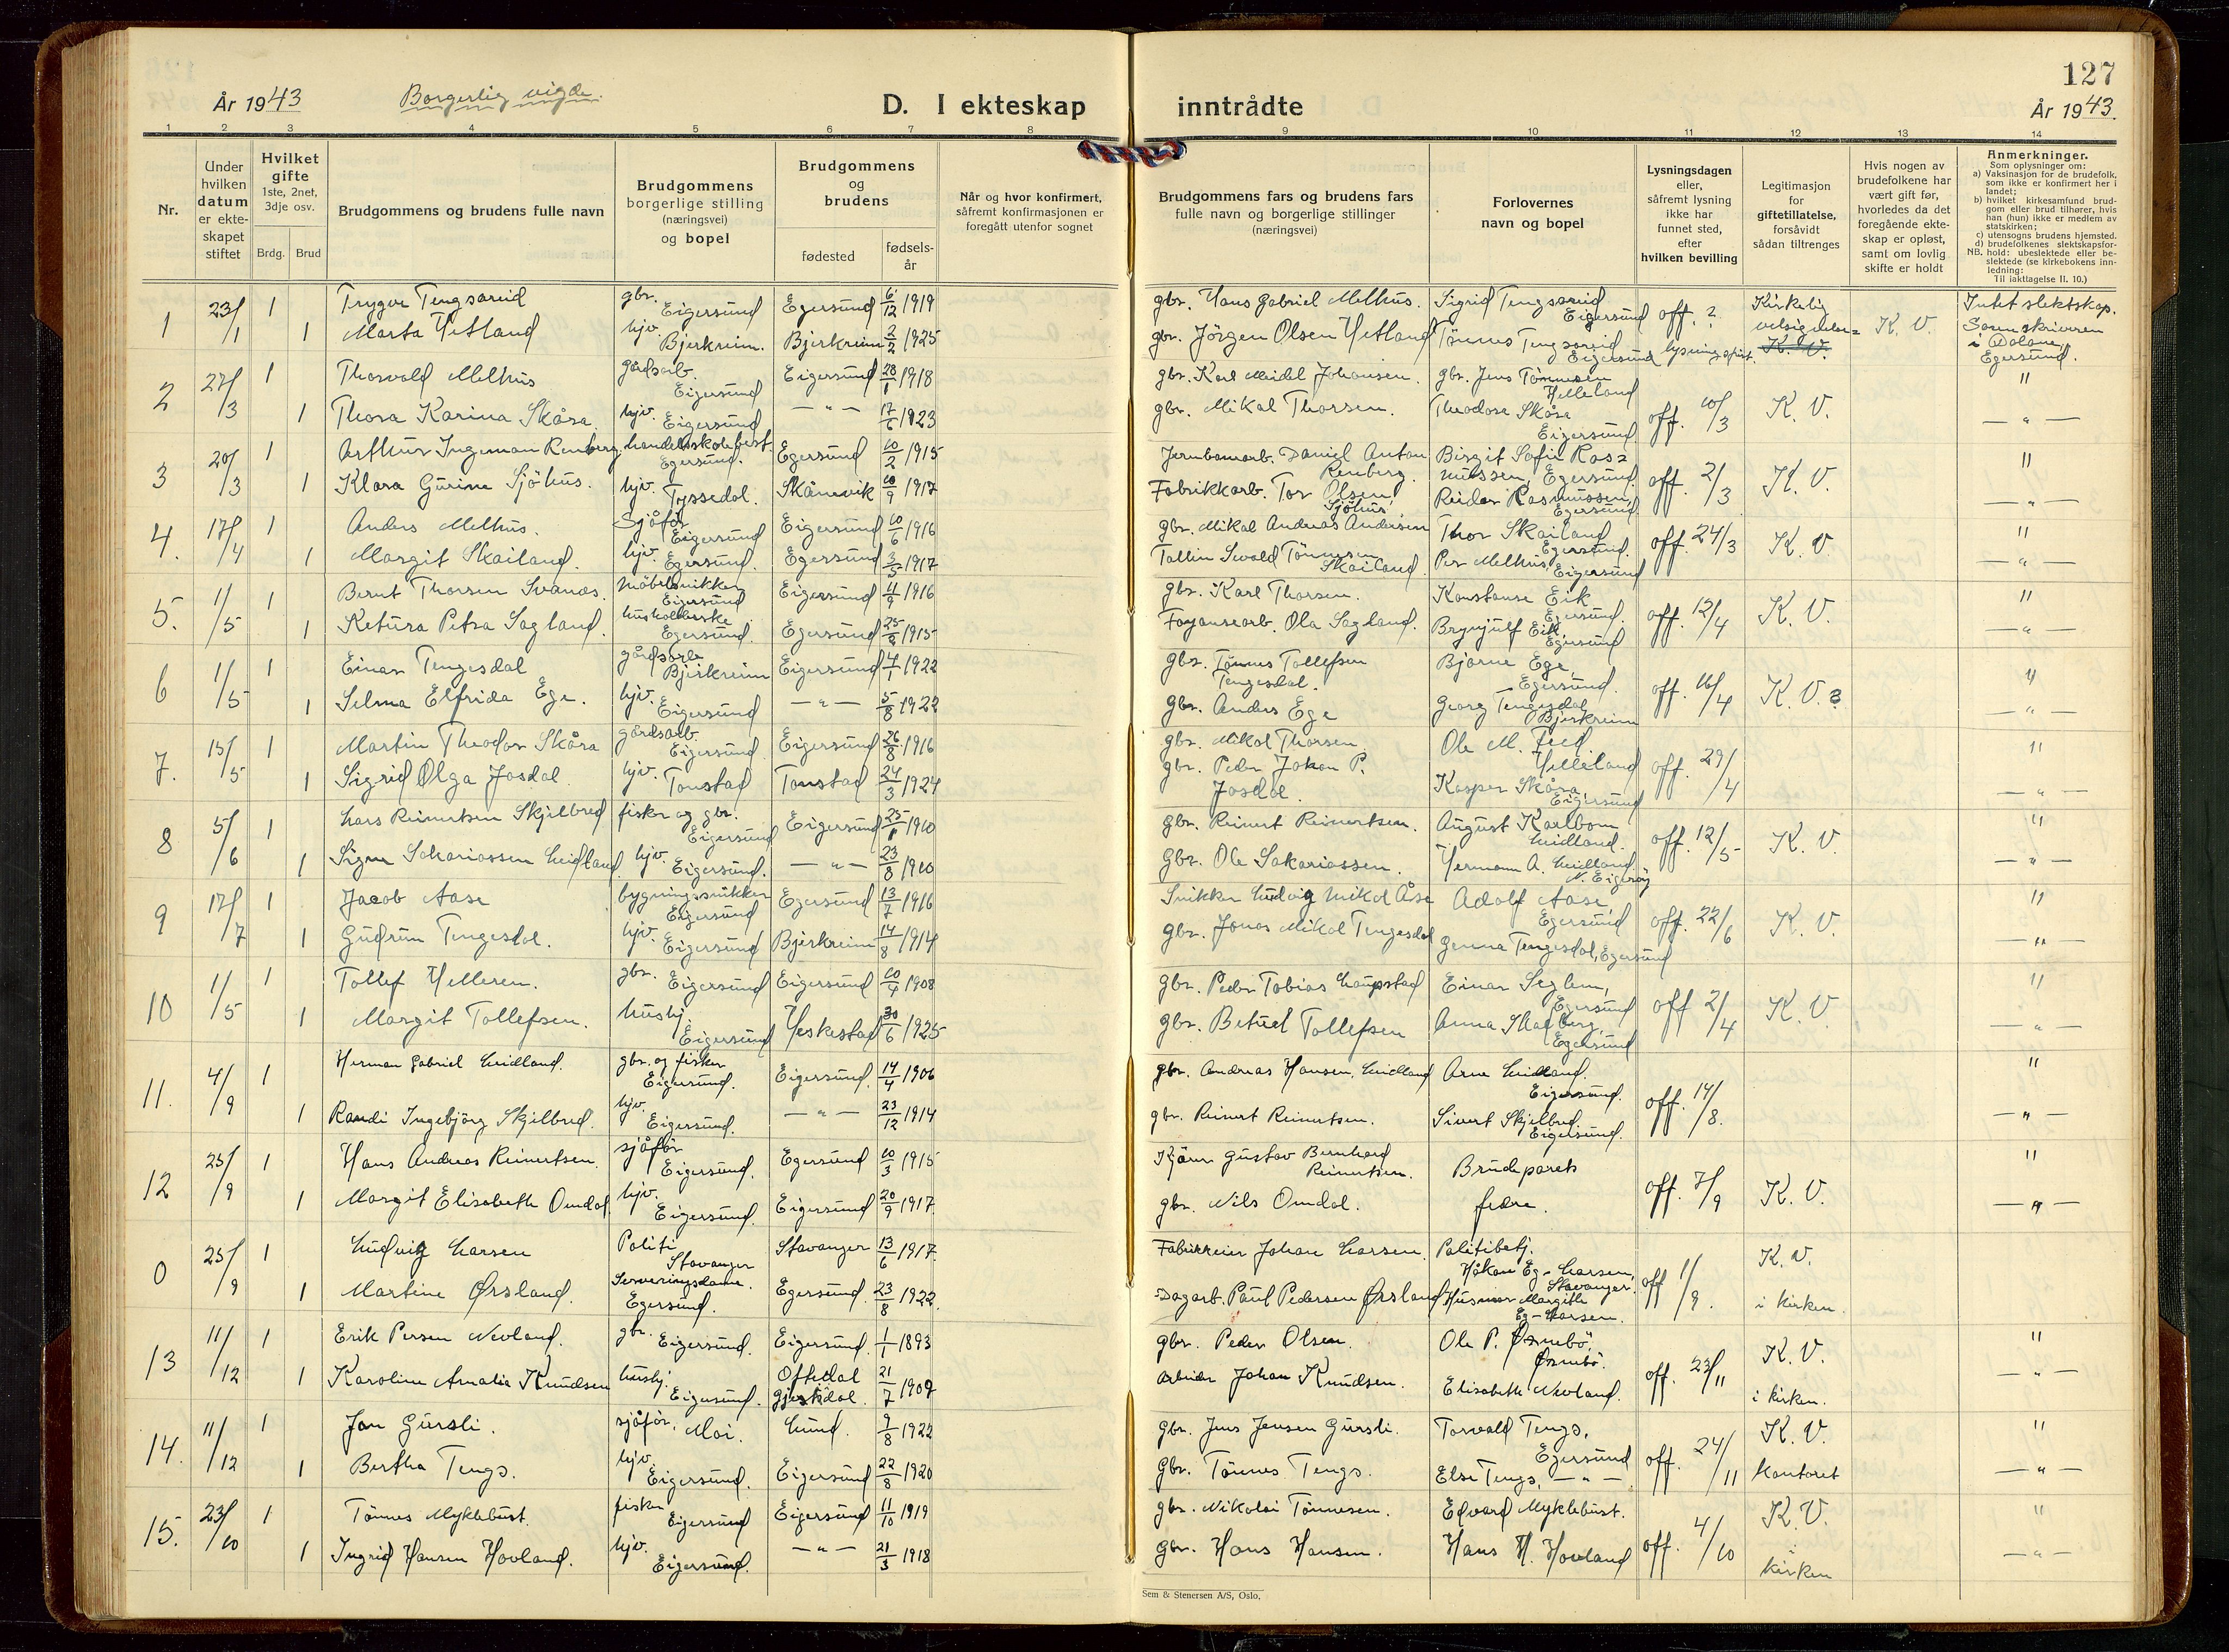 127
År 1943
Borgerlig vigde.
D. I ekteskap
inntrådte
År 1943.
1 2 3 4 5 6 7 8 9 10 11 12 13 14
Nr.
Under hvilken datum er ekteskapet stiftet
Hvilket gifte
1ste, 2net, 3dje osv.
Brdg. Brud
Brudgommens og brudens fulle navn
Brudgommens borgerlige stilling (næringsvei) og bopel
Brudgommens og brudens
fødested
fødselsår
Når og hvor konfirmert, såfremt konfirmasjonen er foregått utenfor sognet
Brudgommens fars og brudens fars fulle navn og borgerlige stillinger (næringsvei)
Forlovernes navn og bopel
Lysningsdagen eller, såfremt lysning ikke har funnet sted, efter hvilken bevilling
Legitimasjon for giftetillatelse, forsåvidt sådan tiltrenges
Hvis nogen av brudefolkene har vært gift før, hvorledes da det foregående ekteskap er opløst, samt om lovlig skifte er holdt
Anmerkninger.
Som oplysninger om:
a) Vaksinasjon for de brudefolk, som ikke er konfirmert her i landet;
b) hvilket kirkesamfund brudgom eller brud tilhører, hvis han (hun) ikke er medlem av statskirken;
c) utensogns brudens hjemsted.
d) brudefolkenes slektskapsforhold: ubeslektede eller beslektede (se kirkebokens innledning:
NB.
Til iakttagelse II. 10.)
1 23/1 1 Trygve Tengsareid gbr. Eigersund Egersund 6/12 1919 gbr. Hans Gabriel Melhus. Sigrid Tengsareid Eigersund off. ? Kirkelig velsignelse K. V. Intet slektskap.
1 Marta Hetland hjv. Bjerkreim. Bjerkreim 2/2 1925 gbr. Jörgen Olsen Hetland Tönnes Tengsareid Eigersund lysningsfrist. K. V. Sorenskriveren i Dalane, Egersund.
2 27/3 1 Thorvald Melhus gårdsarb. Eigersund Eigersund 28/1 1918 gbr. Karl Meidel Johansen. gbr. Jens Tönnesen Helleland off. 10/3 K. V. "
1 Thora Karina Skåra. hjv. Eigersund — " — 17/6 1923 gbr. Mikal Thorsen. Theodor Skåra Eigersund — " —
3 20/3 1 Arthur Ingeman Renberg. handelsskolebest. Egersund. Egersund 10/2 1915 Jernbanearb. Daniel Anton Renberg. Birgit Sofie Rasmussen, Egersund off. 2/3 K. V. "
1 Klara Gurine Sjöhus. hjv. Tyssedal. Skånevik 10/9 1917 Fabrikkarb. Tor Olsen Sjöhus. Reidar Rasmussen, Egersund — " —
4. 17/4 1 Anders Melhus. Sjåför Eigersund Eigersund 10/6 1916 gbr. Mikal Andreas Andersen Thor Skailand Egersund. off. 24/3 K. V. "
1 Margit Skailand. hjv. Egersund. Egersund 3/5 1917 Tollin Sevald Tönnesen Skailand Per Melhus Eigersund — " —
5. 1/5 1 Bernt Thorsen Svanes. Möbelsnikker Eigersund Eigersund 11/9 1916 gbr. Karl Thorsen. Konstanse Eik Egersund. off. 12/4 K. V. "
1 Ketura Petra Sagland. husholderske Egersund. Egersund 25/8 1915 Fayansearb. Ola Sagland. Brynjulf Eik, Egersund — " —
6 1/5 1 Einar Tengesdal gårdsarb. Bjerkreim Eigersund 4/1 1922 gbr. Tönnes Tollefsen Tengesdal. Bjarne Ege Egersund. off. 16/4 K. V. ? "
1 Selma Elfrida Ege. hjv. Eigersund — " — 5/8 1922 gbr. Anders Ege Georg Tengesdal Bjerkreim — " —
7. 15/5 1 Martin Theodor Skåra gårdsarb. Eigersund Eigersund 26/8 1916 gbr. Mikal Thorsen. Ole M. Helleland off. 29/4 "
1 Sigrid Olga Josdal hjv. Tonstad Tonstad 24/3 1924 gbr. Peder Johan P. Josdal. Kasper Skåra, Eigersund — " —
8 5/6 1 Lars Reinertsen Skjelbred fisker og gbr. Eigersund Eigersund 25/1 1910 gbr. Reinert Reinertsen. August Karlbom Leidland. off. 12/5 K. V. "
1 Signe Sakariassen Leidland. hjv. Eigersund. — " — 23/8 1910 gbr. Ole Sakariassen. Hermann A. Leidland N. Eigeröy — " —
9 17/7 1 Jacob Aase bygningssnikker Eigersund Egersund 13/7 1916 Snikker Ludvig Mikal Åse Adolf Aase, Egersund off. 22/6 K. V. "
1 Gudrun Tengesdal. hjv. Eigersund Bjerkreim 14/8 1914 gbr. Jonas Mikal Tengesdal Genna Tengesdal, Egersund — " —
10 1/5 1 Tollef Helleren. gbr. Eigersund Eigersund 10/4 1908 gbr. Peder Tobias Laupstad Einar Seglem, Egersund off 2/4 K. V. "
1 Margit Tollefsen. hushj. Eigersund Heskestad 30/6 1925 gbr. Betuel Tollefsen Anna Skadberg, Egersund — " —
11. 4/9 1 Herman Gabriel Leidland. gbr. og fisker Eigersund. Eigersund 14/4 1906 gbr. Andreas Hansen Leidland Arne Leidland. Eigersund. off. 14/8. "
1 Randi Ingebjörg Skjelbred. hjv. Eigersund. — " — 23/12 1914 gbr. Reinert Reinertsen. Sivert Skjelbred. Eigersund. — " —
12 25/9 1 Hans Andreas Reinertsen. sjåför Eigersund. Egersund 10/3 1915 Kjörer Gustav Bernhard Reinertsen. Brudeparets fedre. off. 7/9 K. V. "
1 Margit Elisabeth Omdal hjv. Eigersund. Eigersund 20/9 1917. gbr. Nils Omdal. — " —
0 25/9 1 Ludvig Larsen Politi Stavanger Stavanger 13/6 1917. Fabrikkeier Johan Larsen. Politibetj. Håkon Eg-Larsen, Stavanger. off 1/9. K. V. i kirken.
1 Martine Ørsland. Serveringsdame. Egersund. Egersund. 23/8 1922. Dagarb. Paul Pedersen Ørsland Husmor Margithe Eg-Larsen.
13 11/12 1 Erik Persen Nevland. gbr. Eigersund. Eigersund. 1/1 1893 gbr. Peder Olsen. Ole P. Örnebö, Örnebö. off. 23/11 K. V. i kirken. "
1 Karoline Amalia Knudsen hushj. Eigersund. Oftedal Gjesdal. 21/7 1909 Arbeider Johan Knudsen. Elisabeth Nevland. — " —
14. 11/12 1 Jan Gursli. sjåför, Moi. Lund. 9/8 1922 gbr. Jens Jensen Gursli. Torvald Tengs, Egersund off. 24/11 K. V. kontoret "
1 Bertha Tengs. hjv. Eigersund. Eigersund 22/8 1920 gbr. Tönnes Tengs. Else Tengs, — " — — " —
15. 23/10 1 Tönnes Myklebust. fisker Eigersund Eigersund 11/10 1919 gbr. Nikolai Tönnesen. Edvard Myklebust. off. 4/10 K. V. i kirken "
1 Ingrid Hansen Hovland. hjv. Eigersund. — " — 21/3 1918 gbr. Hans Hansen. Hans H. Hovland — " —
Sem & Stenersen A/S, Oslo.